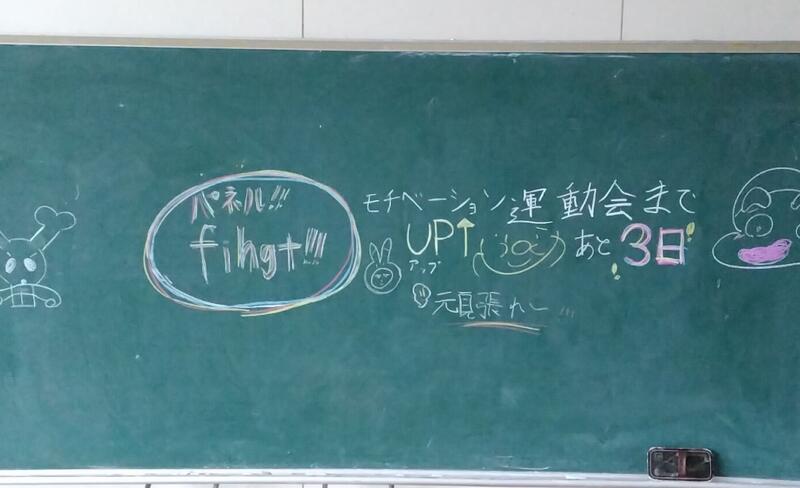 パネル!!!
fihgt!!!
モチベーション
UP↑
アップ
運動会まで
あと3日
頑張れー!!!